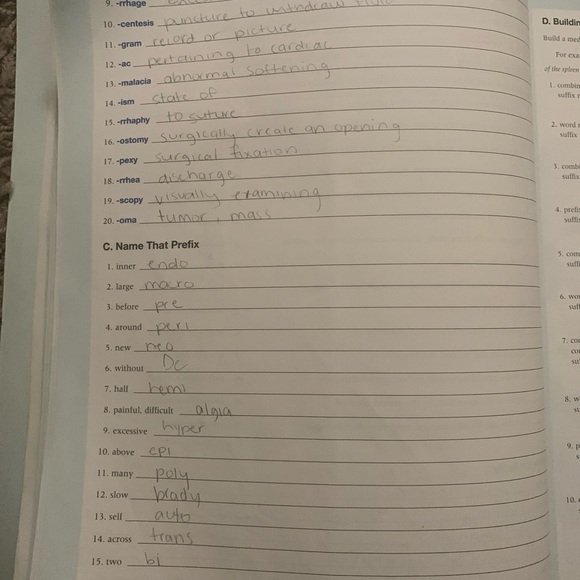 9. -rrhage
10. -centesis puncture to withdraw fluid
11. -gram record or picture
12. -ac pertaining to cardiac
13. -malacia abnormal softening
14. -ism state of
15. -rrhaphy to suture
16. -ostomy surgically create an opening
17. -pexy surgical fixation
18. -rrhea discharge
19. -scopy visually examining
20. -oma tumor, mass
C. Name That Prefix
1. inner endo
2. large macro
3. before pre
4. around peri
5. new neo
6. without De
7. half hemi
8. painful, difficult algia
9. excessive hyper
10. above epi
11. many poly
12. slow brady
13. self auto
14. across trans
15. two bi
D. Buildin
Build a med
For exa
of the spleen
1. combin
suffix
2. word
suffix
3. combi
suffix
4. prefi
suffi
5. com
suffi
6. wo
suf
7. co
co
su
8. w
su
9. p
s
10.